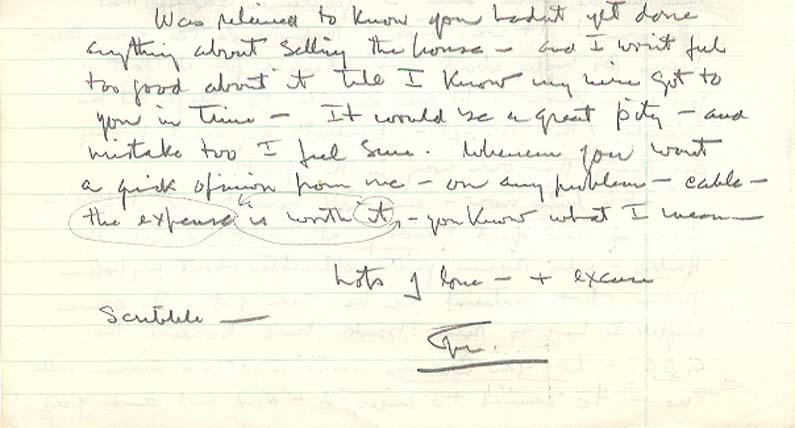 Was relieved to know you hadn't yet done
anything about selling the house – and I won't feel
too good about it till I know my wire got to
you in time – It would be a great pity – and
mistake too I feel sure. Whenever you want
a quick opinion from me – on any problem – cable –
the expense is worth it, – you know what I mean –
Lots of love – + excuse
Scribble –